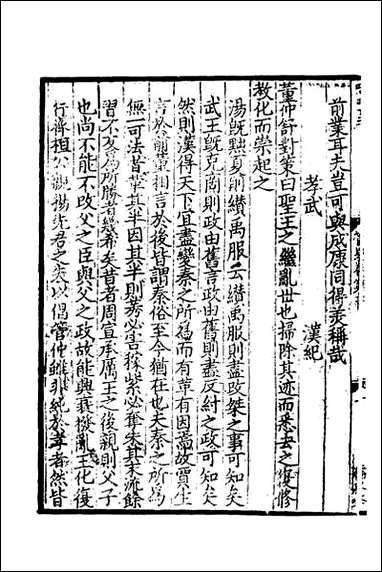 前業耳夫豈可與成康同得美稱哉
孝武 漢紀
董仲舒對策曰聖王之繼亂世也掃除其迹而悉去之復修
教化而崇起之
湯旣黜夏則纘禹服云纘禹服則盡改桀之事可知矣
武王旣克商則政由舊言政由舊則盡反紂之政可知矣
然則漢得天下宜盡變秦之所爲而有革有因焉故賈生
言於前董相言於後皆謂秦俗至今猶在也夫秦之所爲
無一可法者革其半因其半則莠必害稼紫必奪朱其末流餘
習不爻爲所勝者幾希矣昔者周宣承厲王之後親則父子
也尚不能不改父之臣與父之政故能興衰撥亂王化復
行襄祖公觀揚先君之以倡管仲雖非純於者然皆